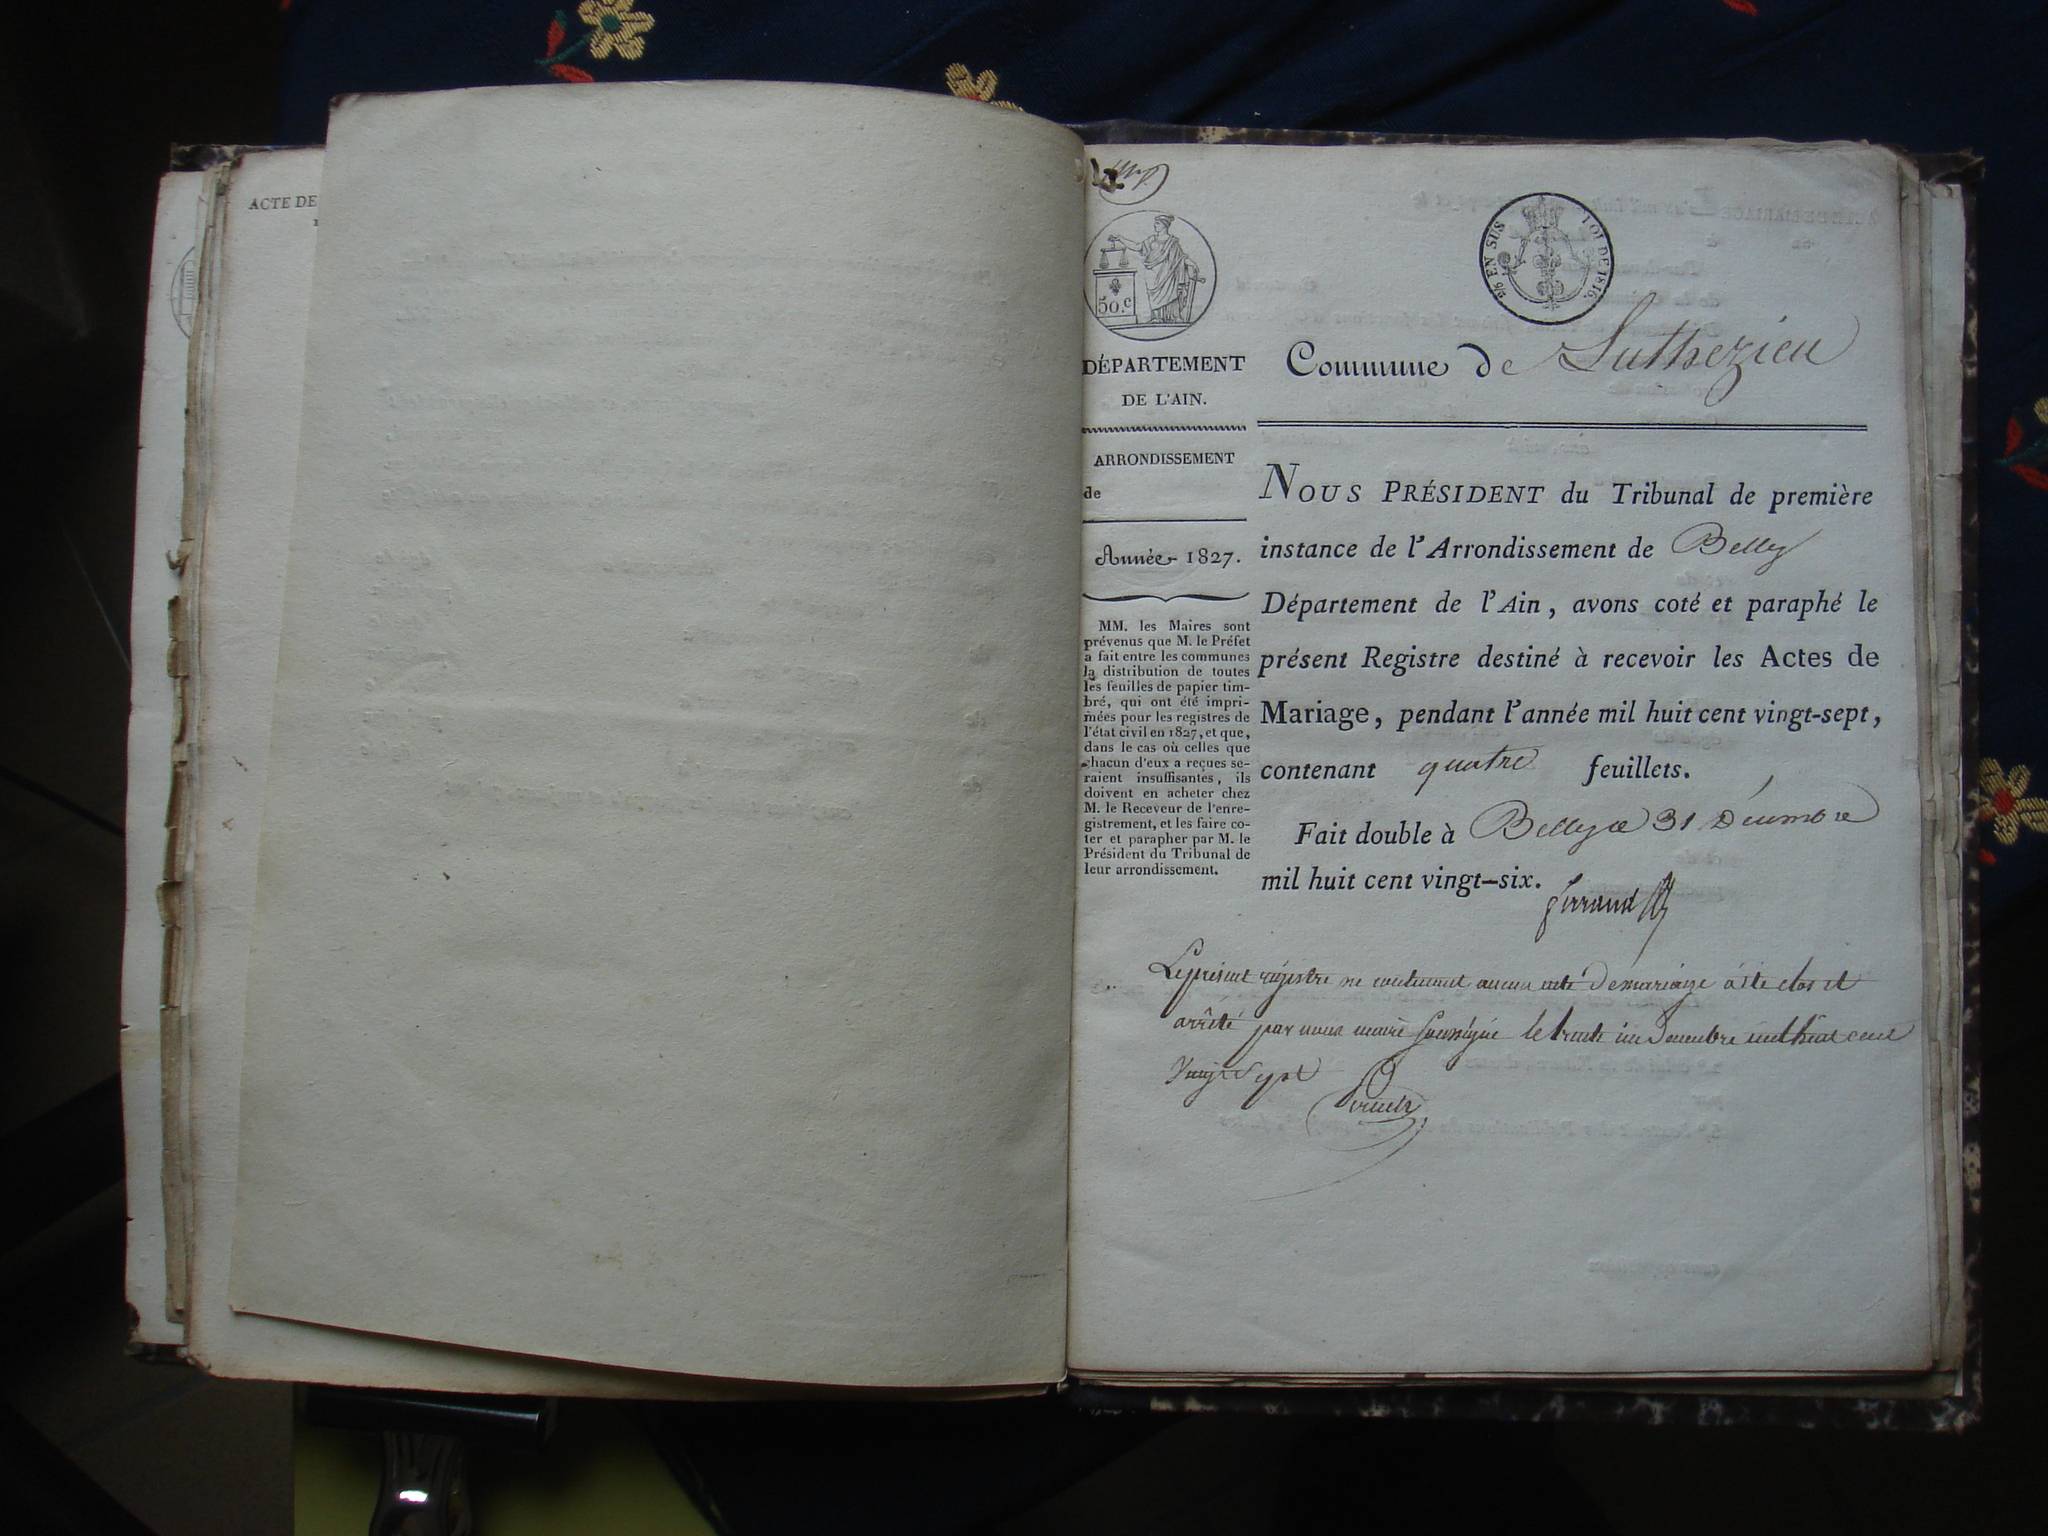 ACTE DE
50.c
EN SUS LOI DE 1816.
DÉPARTEMENT
DE L'AIN.
ARRONDISSEMENT
de
Année 1827.
MM. les Maires sont
prévenus que M. le Préfet
a fait entre les communes
la distribution de toutes
les feuilles de papier tim-
bré, qui ont été impri-
mées pour les registres de
l'état civil en 1827, et que,
dans le cas où celles que
chacun d'eux a reçues se-
raient insuffisantes, ils
doivent en acheter chez
M. le Receveur de l'enre-
gistrement, et les faire co-
ter et parapher par M. le
Président du Tribunal de
leur arrondissement.
Commune de Luthezieu
NOUS PRÉSIDENT du Tribunal de première
instance de l'Arrondissement de Belley
Département de l'Ain, avons coté et paraphé le
présent Registre destiné à recevoir les Actes de
Mariage, pendant l'année mil huit cent vingt-sept,
contenant quatre feuillets.
Fait double à Belley ce 31 Décembre
mil huit cent vingt-six.
Le présent régistre ne contenant aucun acte de mariage à été clos et
arrêté par nous maire soussigné le trente un Decembre mil huit cent
vingt Sept